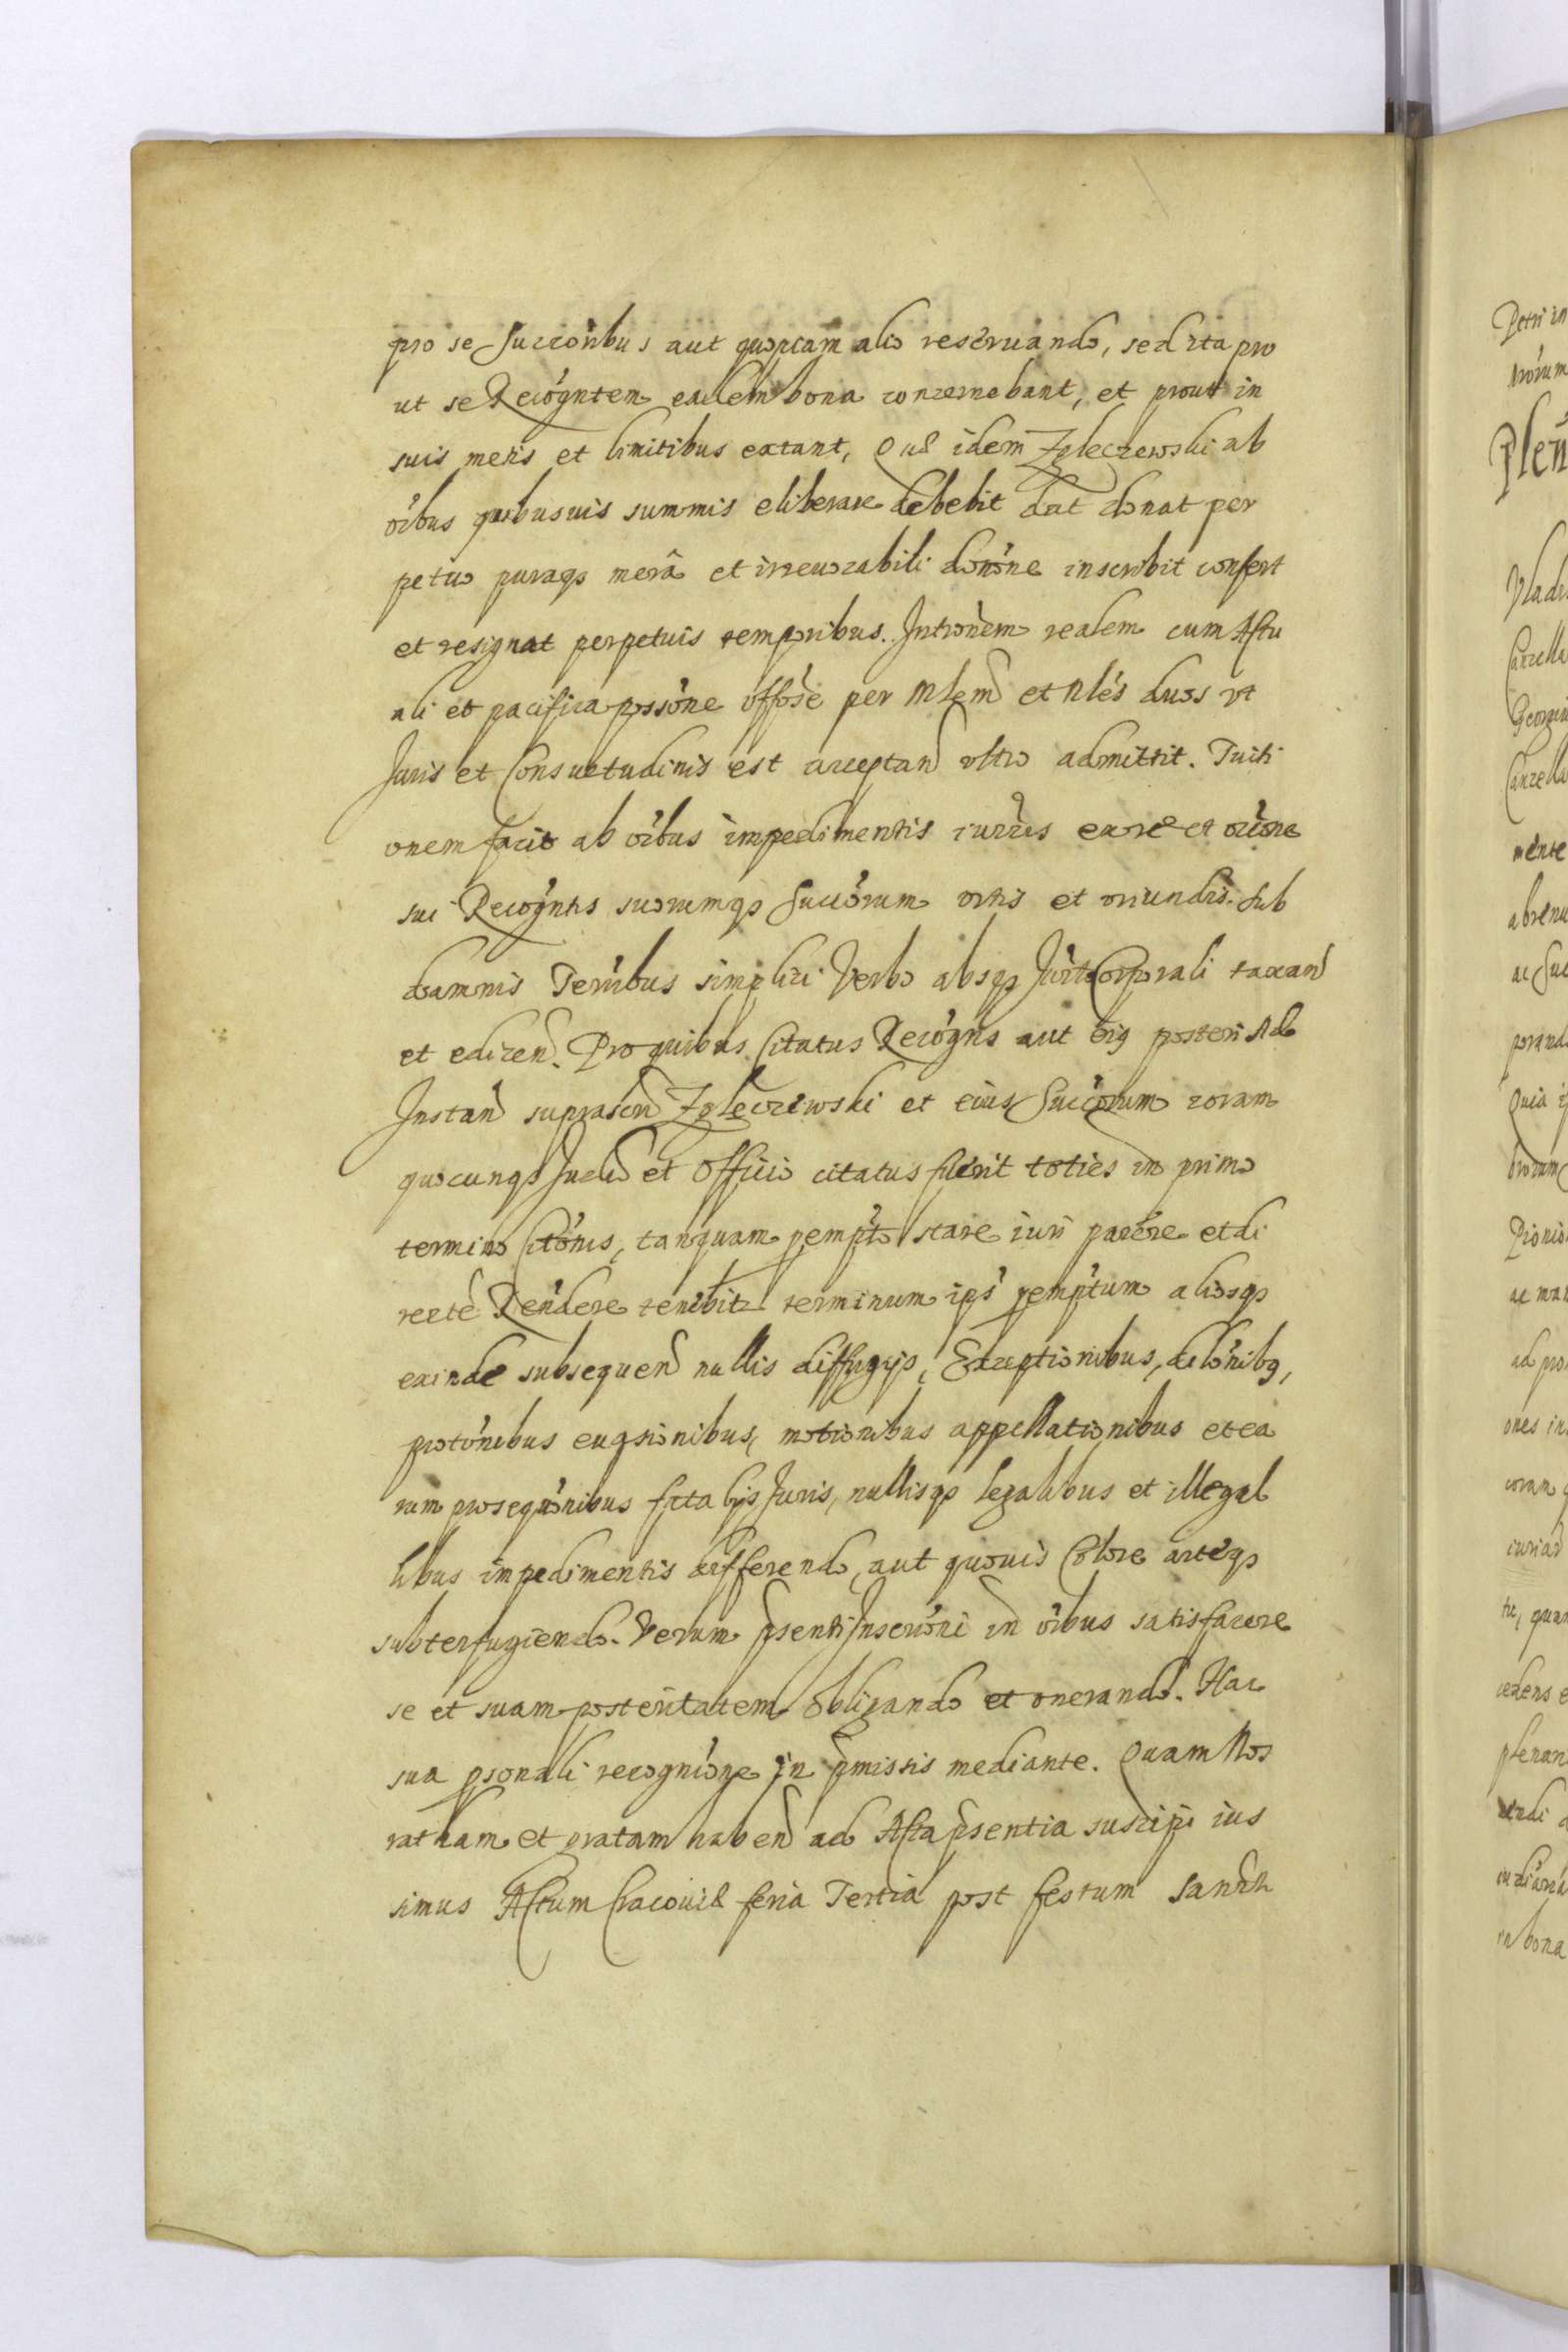 pro se Succoribus aut quopiam alio reseruando, sed ita pro
ut se Recogntem eadem bona concernebant, et prout in
suis metis et limitibus extant, Quae idem Zgleczewski ab
oibus quibusuis summis eliberare debebit dat donat per
petuo puraqs mera et irreuocabili donone inscribit confert
et resignat perpetuis temporibus. Intronem realem cum Actu
ali et pacifica possone offose per Mlem et Nles duos vt
Juris et Consuetudinis est acceptand vltro admittit. Tuiti
onem facit ab oibus impedimentis iurris ex ore et oione
sui Recogntis suorumqs Succorum ortis et oriundis. Sub
damnis Terribus simplici Verbo absqs Jurto Corporali taxand
et edicend. Pro quibus Citatus Recogns aut eig posteri Ad
Instan suprascri Zgleczewski et eius Succorum coram
quocunqs Judio et Officio citatus fuerit toties in primo
termino Citonis, tanquam pempto stare iuri parere et di
recte Rendere tenebitr terminum ips pemptum aliosqs
exinde subsequen nullis diffugijs, Exceptionibus, dilonibg,
protonibus euasionibus, motionibus appellationibus et ea
rum prosequonibus fatalijs Juris, nullisqs legalibus et illegal
libus impedimentis differendo, aut quouis Colore arteqs
subterfugiendo. Verum psenti Inscrioni in oibus satisfacere
se et suam posteritatem obligando et onerando. Hac
sua psonali recognione in pmissis mediante. Quam Nos
ratham et gratam haben ad Acta psentia suscipi ius
simus Actum Cracouiae feria Tertia post festum Sancti